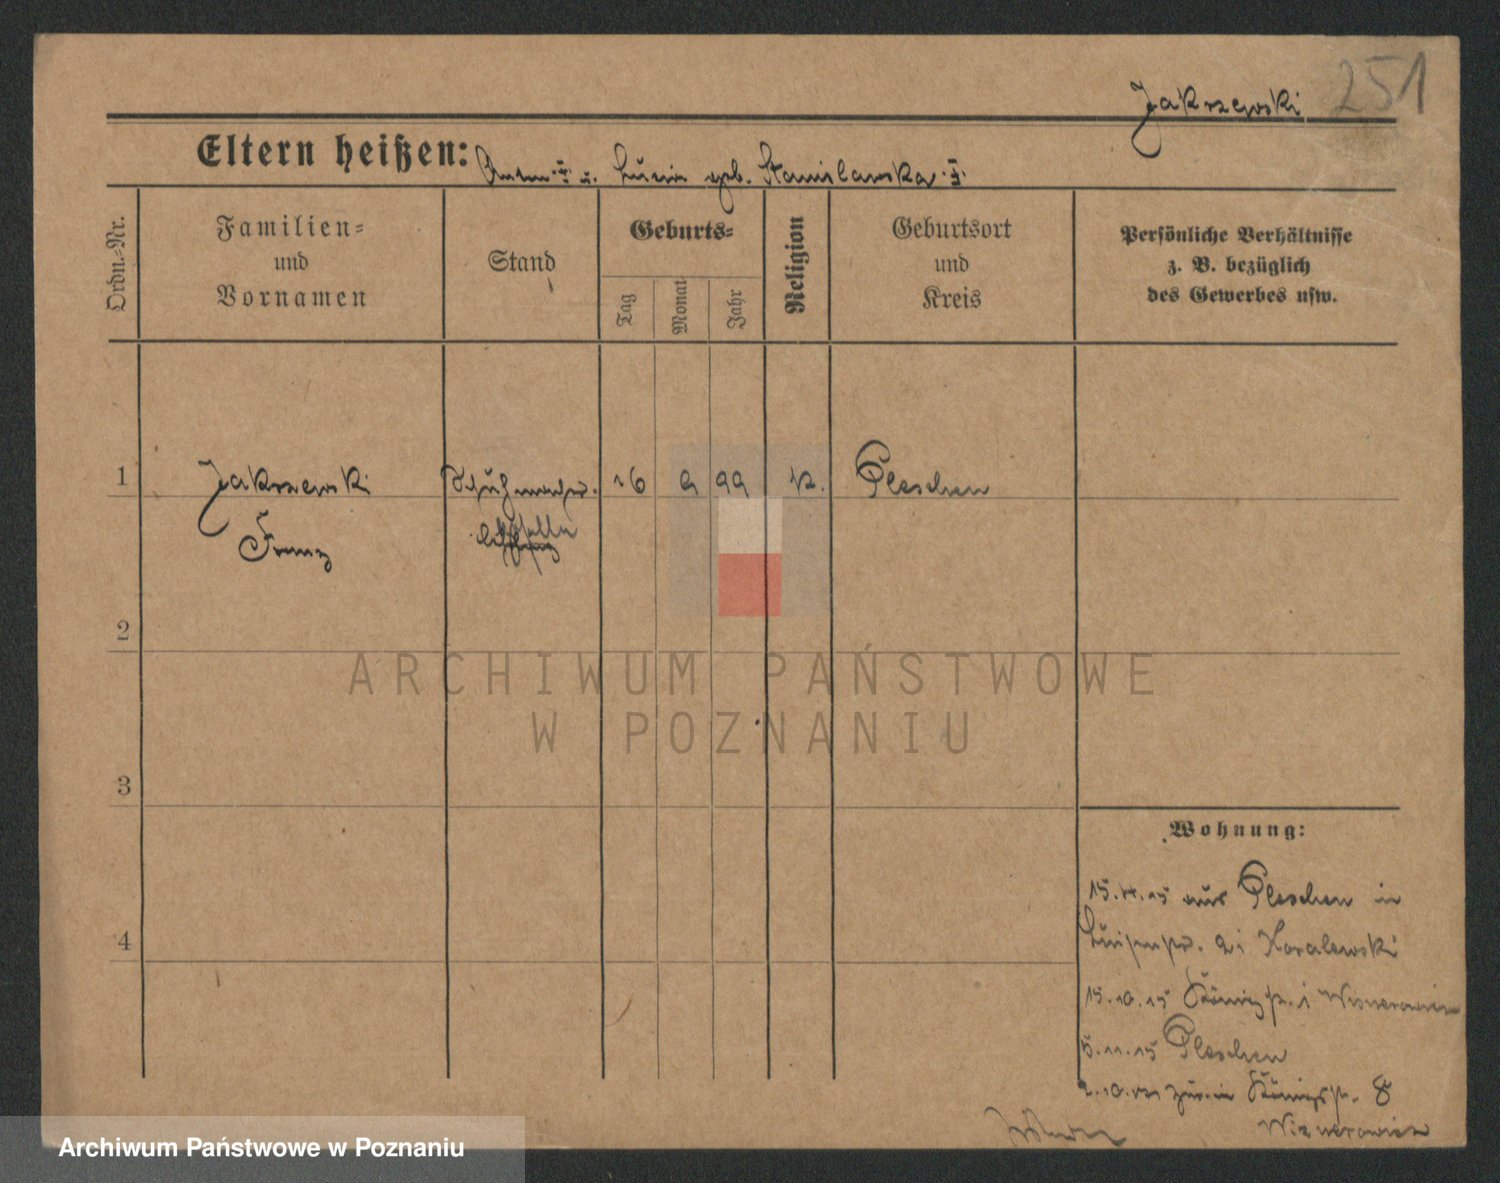 251
Jakrzewski
Eltern heißen: Anton u. Luzia geb. Stanislawska
Ordn.-Nr.
Familien-
und
Vornamen
Stand
Geburts-
Tag
Monat
Jahr
Religion
Geburtsort
und
Kreis
Persönliche Verhältnisse
z. B. bezüglich
des Gewerbes usw.
1 Jakrzewski Schuhmacher. 16 9 99 k. Pleschen
Franz
2
3
4
Wohnung:
15.4.15 aus Pleschen in
Luisenstr. 2 i Koralewski
15.10.15 Königstr. i
5.11.15 Pleschen
2.10. Königstr. 8
ARCHIWUM PAŃSTWOWE
W POZNANIU
Archiwum Państwowe w Poznaniu